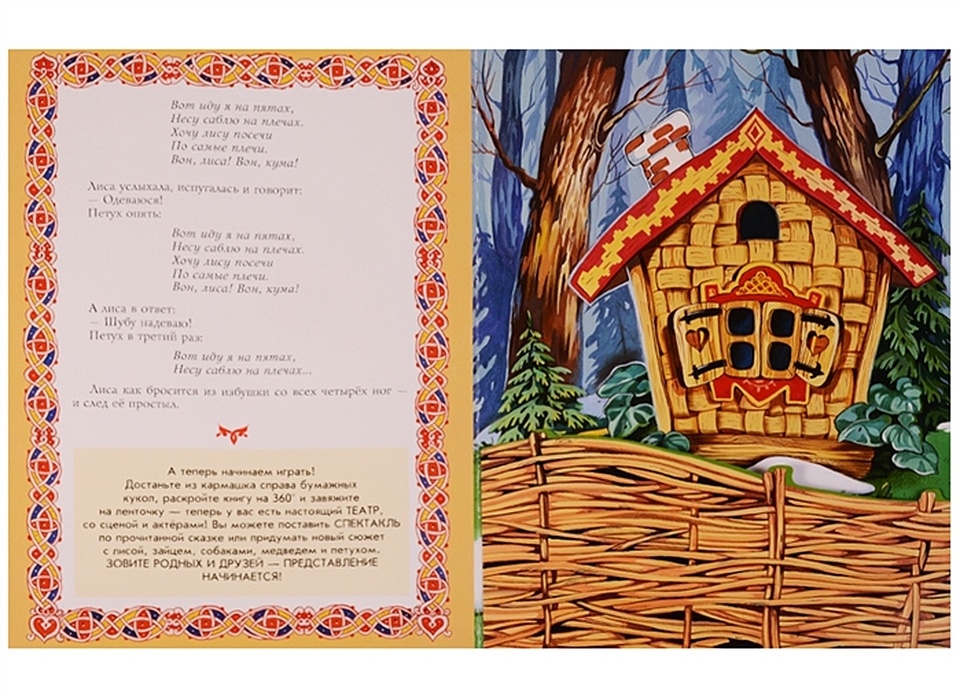 Вот иду я на пятах,
Несу саблю на плечах.
Хочу лису посечи
По самые плечи.
Вон, лиса! Вон, кума!
Лиса услыхала, испугалась и говорит:
— Одеваюся!
Петух опять:
Вот иду я на пятах,
Несу саблю на плечах.
Хочу лису посечи
По самые плечи.
Вон, лиса! Вон, кума!
А лиса в ответ:
— Шубу надеваю!
Петух в третий раз:
Вот иду я на пятах,
Несу саблю на плечах...
Лиса как бросится из избушки со всех четырёх ног —
и след её простыл.
А теперь начинаем играть!
Достаньте из кармашка справа бумажных
кукол, раскройте книгу на 360° и завяжите
на ленточку — теперь у вас есть настоящий ТЕАТР,
со сценой и актёрами! Вы можете поставить СПЕКТАКЛЬ
по прочитанной сказке или придумать новый сюжет
с лисой, зайцем, собаками, медведем и петухом.
ЗОВИТЕ РОДНЫХ И ДРУЗЕЙ — ПРЕДСТАВЛЕНИЕ
НАЧИНАЕТСЯ!